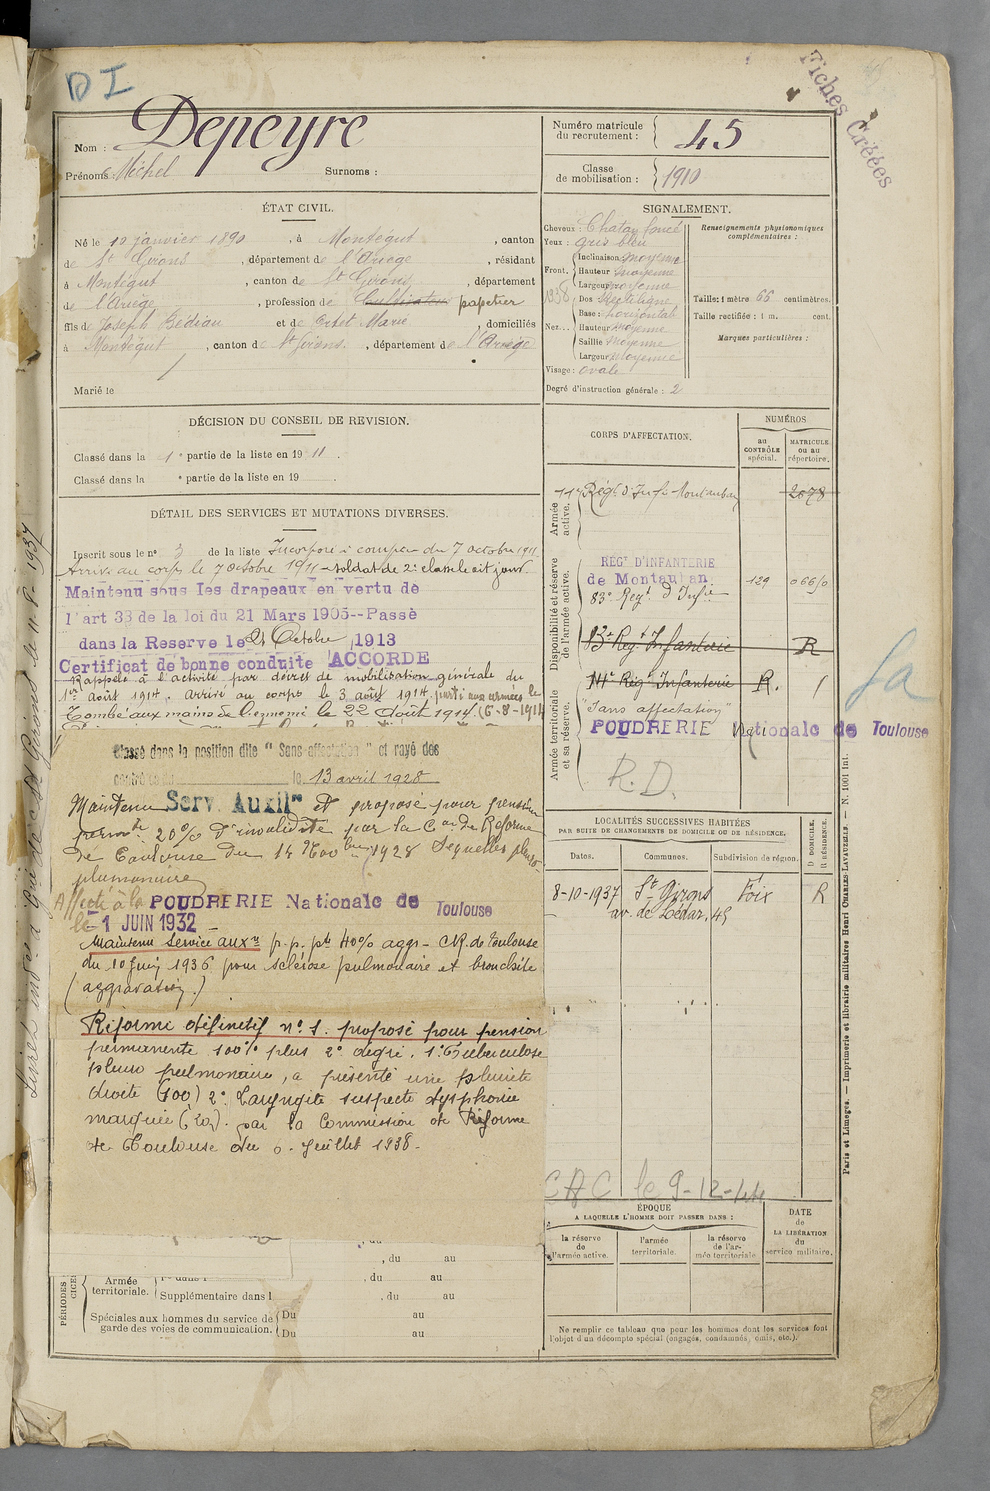 D I
Fiches Créées
Nom : Depeyre
Prénoms : Michel Surnoms :
Numéro matricule du recrutement : 45
Classe de mobilisation : 1910
ÉTAT CIVIL.
Né le 10 janvier 1890, à Montégut, canton
de St Girons, département de l'Ariège, résidant
à Montégut, canton de St Girons, département
de l'Ariège, profession de Cultivateur papetier
fils de Joseph Bédiau et de Marie, domiciliés
à Montégut, canton de St Girons, département de l'Ariège
Marié le
SIGNALEMENT.
Cheveux : Chatain foncé
Yeux : gris bleu
Front. Inclinaison : moyenne
Hauteur : moyenne
Largeur : moyenne
1938
Nez... Dos : Rectiligne
Base : horizontale
Hauteur : moyenne
Saillie : moyenne
Largeur : moyenne
Visage : ovale
Renseignements physionomiques complémentaires :
Taille : 1 mètre 66 centimètres.
Taille rectifiée : 1 m. cent.
Marques particulières :
Degré d'instruction générale : 2
DÉCISION DU CONSEIL DE REVISION.
Classé dans la 1e partie de la liste en 1911.
Classé dans la e partie de la liste en 19 .
DÉTAIL DES SERVICES ET MUTATIONS DIVERSES.
Inscrit sous le n° 3 de la liste Incorporé à compter du 7 octobre 1911
Arrivé au corps le 7 octobre 1911 - soldat de 2e classe le dit jour.
Maintenu sous les drapeaux en vertu de
l'art 33 de la loi du 21 Mars 1905--Passé
dans la Reserve le 21 Octobre 1913
Certificat de bonne conduite ACCORDE
Rappelé à l'activité par décret de mobilisation générale du
1er août 1914. arrivé au corps le 3 août 1914, parti aux armées le
Tombé aux mains de l'ennemi le 22 août 1914. (6-8-1914
Classé dans la position dite " Sans affectation " et rayé des
contrôles le 13 avril 1928
Maintenu Serv. Auxilre et proposé pour pension
permte 20% d'invalidité par la Con de Réforme
de Toulouse du 14 Novbre 1928 Séquelles pleuro-
pulmonaire
Affecté à la POUDRERIE Nationale de Toulouse
le -1 JUIN 1932
Maintenu Service auxre p.p. pte 40% aggr- CR. de Toulouse
du 10 Juin 1936 pour sclérose pulmonaire et bronchite
(aggravation.)
Réformé définitif n° 1. proposé pour pension
permanente 100% plus 2e degré. 1° Tuberculose
pleuro pulmonaire, a présenté une pleurite
droite (100) 2° Laryngite suspecte dysphonie
marquée (20). par la Commission de Réforme
de Toulouse du Juillet 1938-
CORPS D'AFFECTATION.
NUMÉROS
au CONTRÔLE spécial.
MATRICULE ou au répertoire.
Armée active.
11e Régt d'Inf. Montauban 2078
Disponibilité et réserve de l'armée active.
REGt D'INFANTERIE
de Montauban 129
83e Regt d'Infie
83e Regt Infanterie R
Armée territoriale et sa réserve.
14e Régt Infanterie R. 1
"Sans affectation"
POUDRERIE Nationale de Toulouse
R.D.
Sa
LOCALITÉS SUCCESSIVES HABITÉES
PAR SUITE DE CHANGEMENTS DE DOMICILE OU DE RÉSIDENCE.
Dates. Communes. Subdivision de région. D DOMICILE. R RÉSIDENCE.
8-10-1937 St Girons Foix R
av. de Lédar, 45
CAC le 9-12-44
ÉPOQUE
A LAQUELLE L'HOMME DOIT PASSER DANS :
la réserve de l'armée active.
l'armée territoriale.
la réserve de l'armée territoriale
DATE de LA LIBÉRATION du service militaire.
Ne remplir ce tableau que pour les hommes dont les services font
l'objet d'un décompte spécial (engagés, condamnés, omis, etc.).
, du au
Armée territoriale. , du au
Supplémentaire dans l , du au
Spéciales aux hommes du service de garde des voies de communication. Du au
Du au
Paris et Limoges. — Imprimerie et librairie militaires Henri CHARLES-LAVAUZELLE. — N. 1001 int.